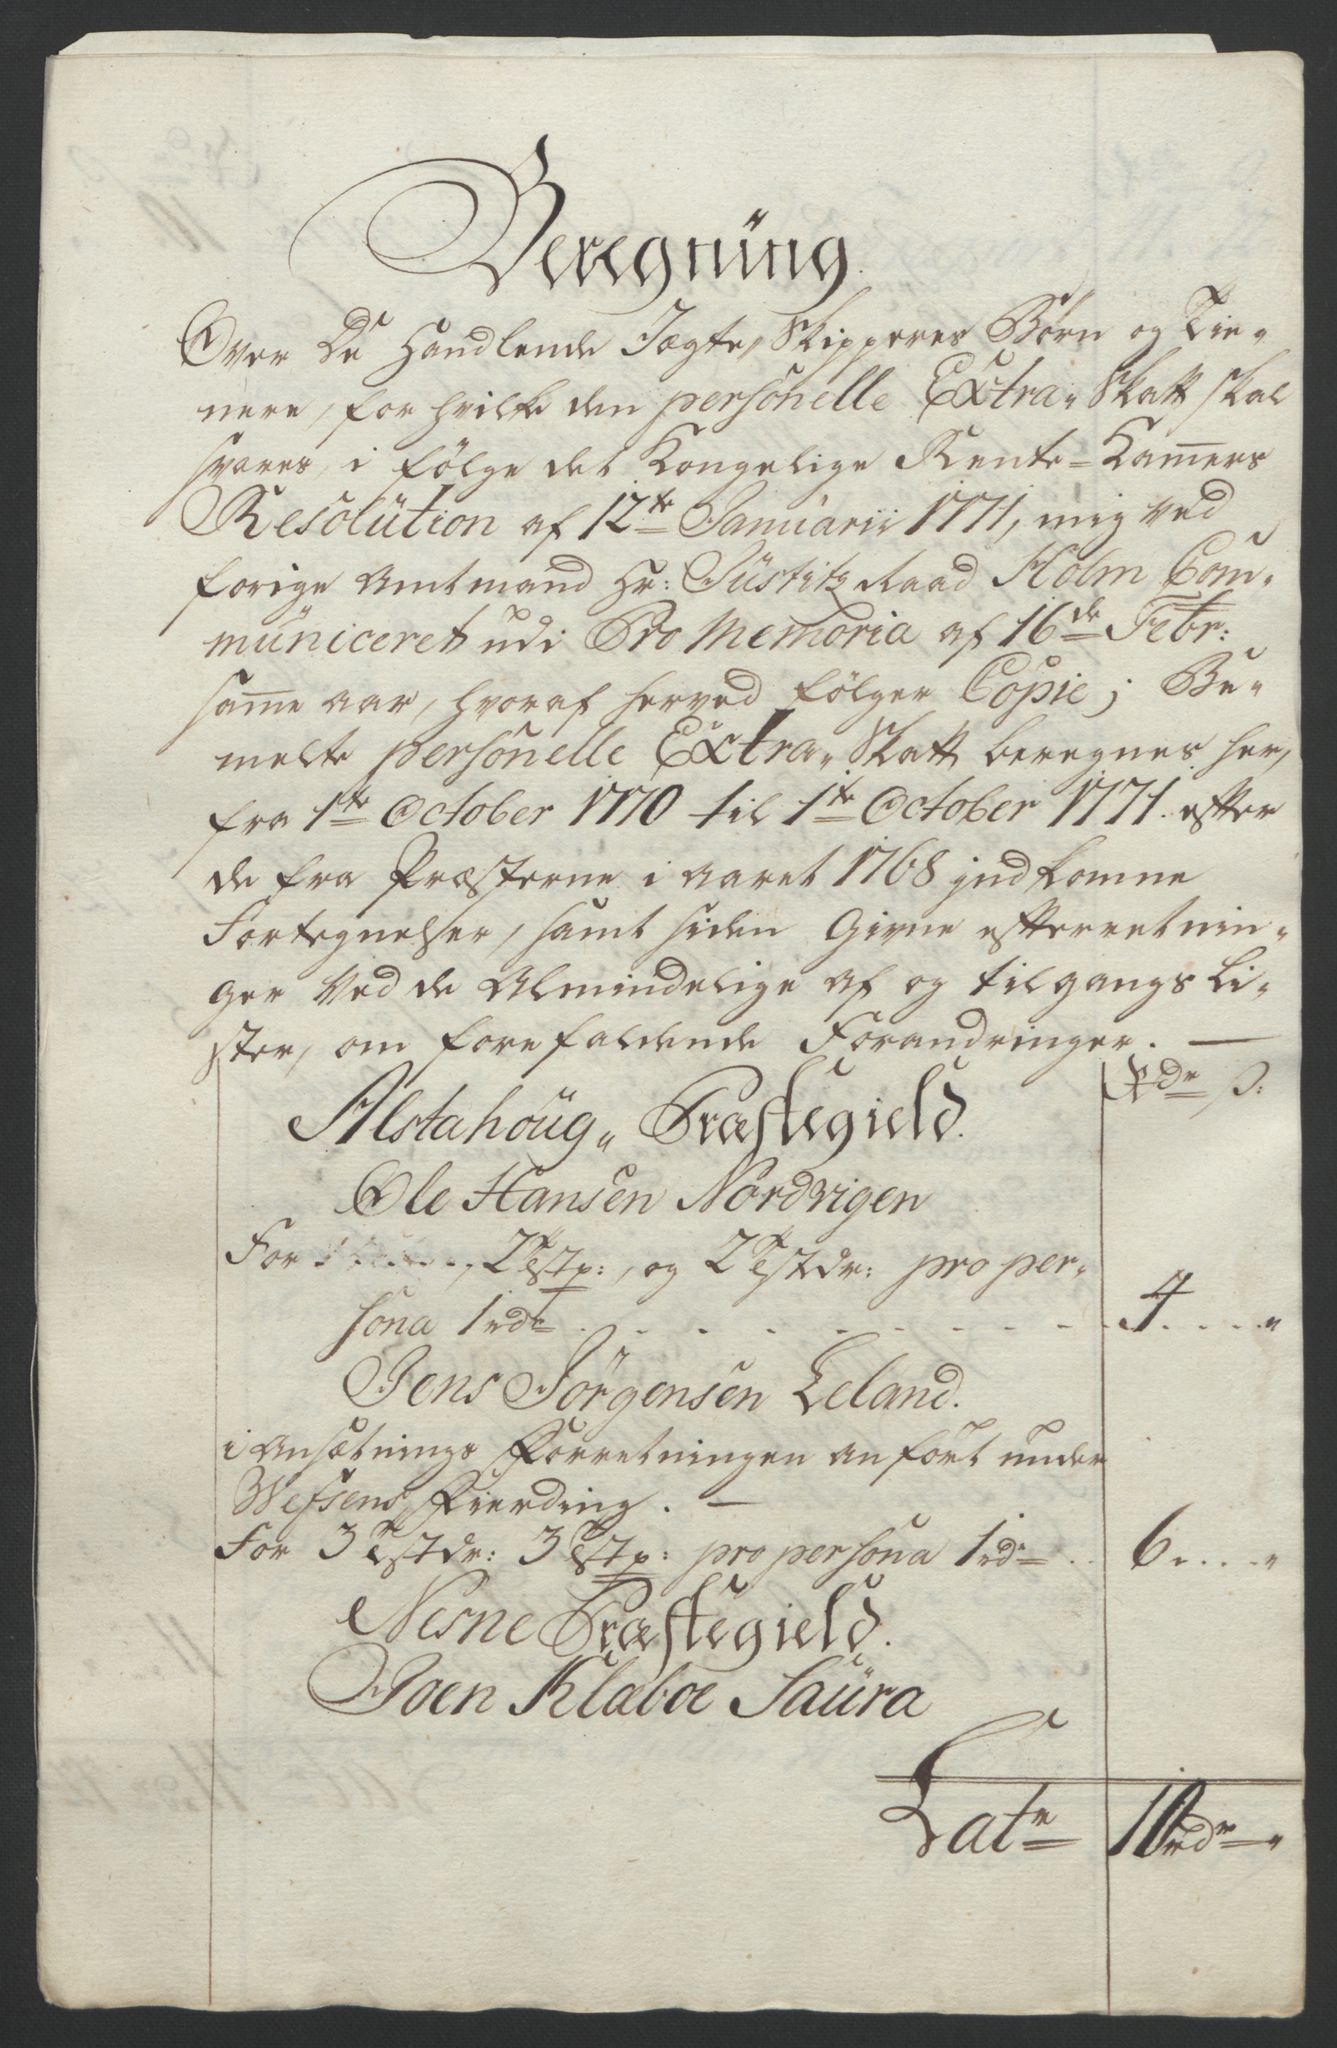 Beregning
Over De Handlende Jægte, Skipperes Børn og Tie-
nere, for hvilke den personelle Extra-Skatt skal
svares, i følge det Kongelige Rente-Kamers
Resolution af 12te Januarii 1771, mig ved
forige Amtmand Hr: Justitz Raad Holm Com-
municeret udi Pro Memoria af 16de Febr:
same aar, hvoraf herved følger Copie; Be-
melte personelle Extra-Skatt beregnes her,
fra 1te October 1770 til 1te October 1771. efter
de fra Præsterne i aaret 1768 indkomne
Fortegnelser, samt siden Givne efterretnin-
ger ved de Almindelige af og tilgangs Li-
ster, om forefaldende Forandringer.
Rdr ß:
Alstahoug-Præstegield.
Ole Hansen Nordvigen
For 2 Tstp:, og 2 Tstdr: pro per-
sona 1 rdr 4 "
Jens Jørgensen Leland.
i Ansætnings Forretningen anført under
Wefsens Fierding.
For 3 Tstdr: 3 Tstp: pro persona 1 rdr 6 "
Nesne Præstegield.
Joen Klæboe Saura
Latr 10 rdr "